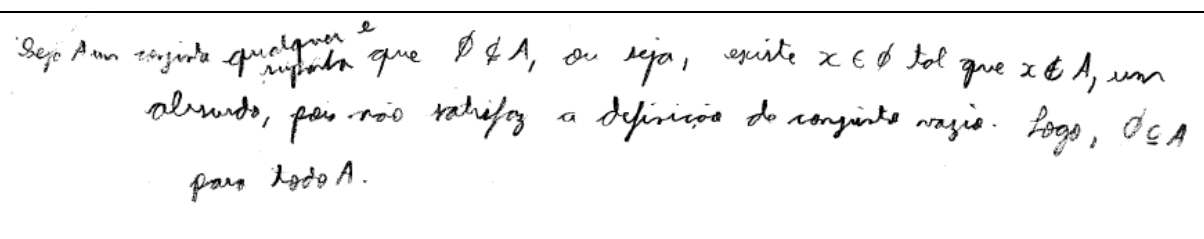 Seja A um conjunto qualquer e suponha que ∅ ⊄ A, ou seja, existe x ∈ ∅ tal que x ∉ A, um
absurdo, pois não satisfaz a definição de conjunto vazio. Logo, ∅ ⊆ A
para todo A.